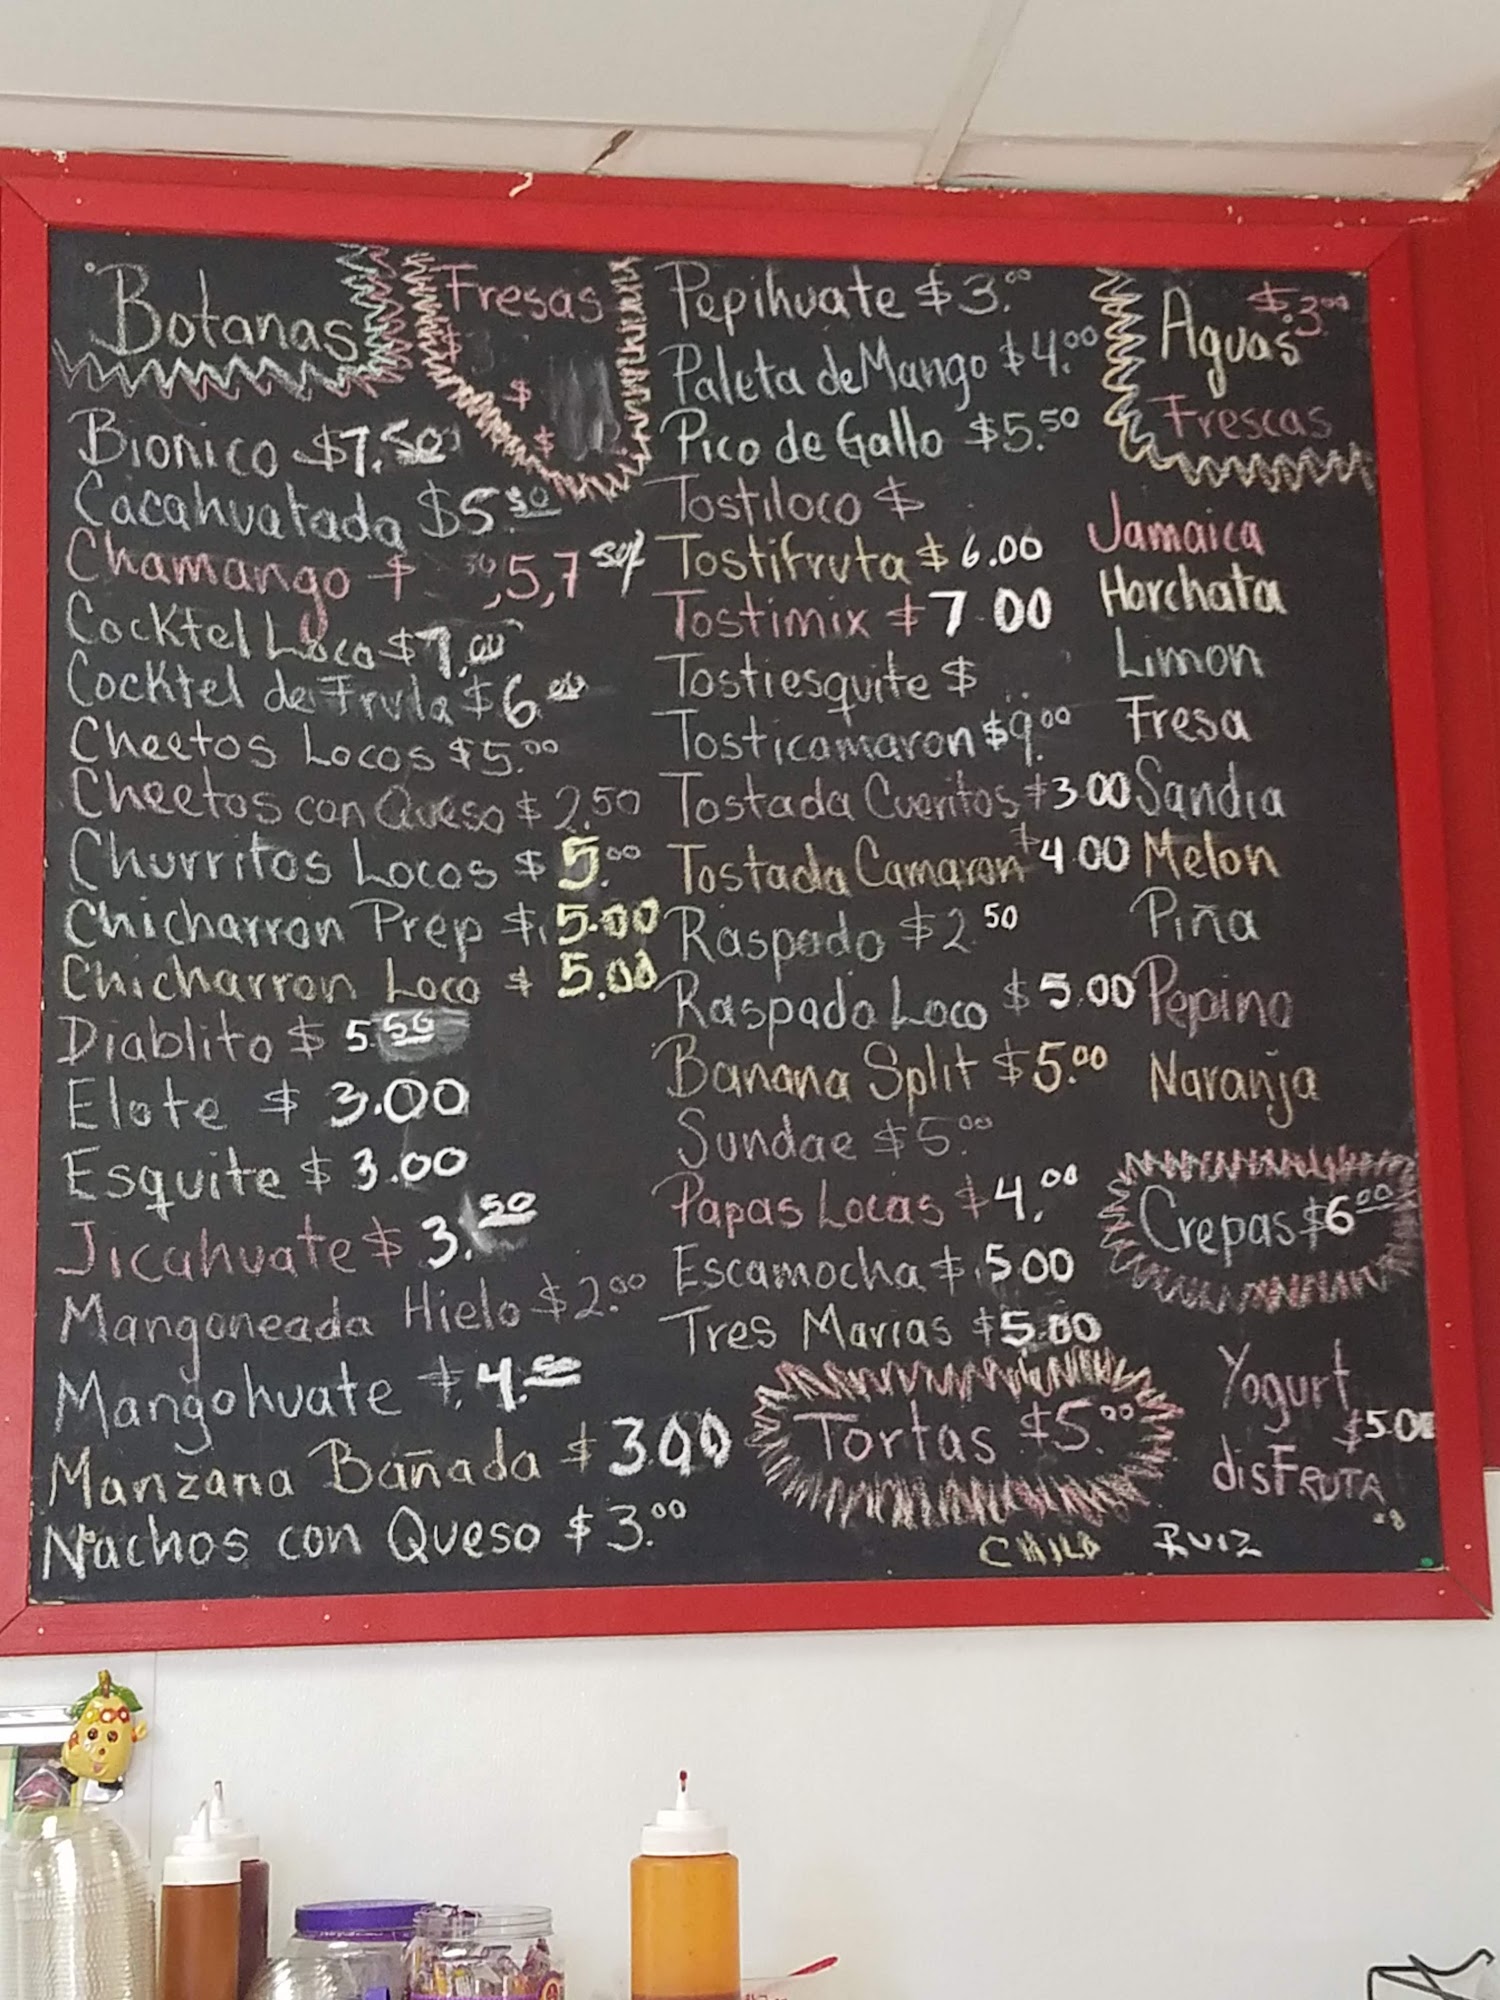 Botanas
Bionico $7.50
Cacahuatada $5.50
Chamango $ ,5,7
Cocktel Loco $7.00
Cocktel de Fruta $6.00
Cheetos Locos $5.00
Cheetos con Queso $2.50
Churritos Locos $5.00
Chicharron Prep $5.00
Chicharron Loco $5.00
Diablito $5.50
Elote $3.00
Esquite $3.00
Jicahuate $3.50
Mangoneada Hielo $2.00
Mangohuate $4.50
Manzana Bañada $3.00
Nachos con Queso $3.00
Fresas
$
$
$
Pepihuate $3.00
Paleta de Mango $4.00
Pico de Gallo $5.50
Tostiloco $
Tostifruta $6.00
Tostimix $7.00
Tostiesquite $
Tosticamaron $9.00
Tostada Cueritos $3.00
Tostada Camaron $4.00
Raspado $2.50
Raspado Loco $5.00
Banana Split $5.00
Sundae $5.00
Papas Locas $4.00
Escamocha $5.00
Tres Marias $5.00
Tortas $5.00
$3.00
Aguas
Frescas
Jamaica
Horchata
Limon
Fresa
Sandia
Melon
Piña
Pepino
Naranja
Crepas $6.00
Yogurt
$5.00
disFRUTA
CHILO RUIZ